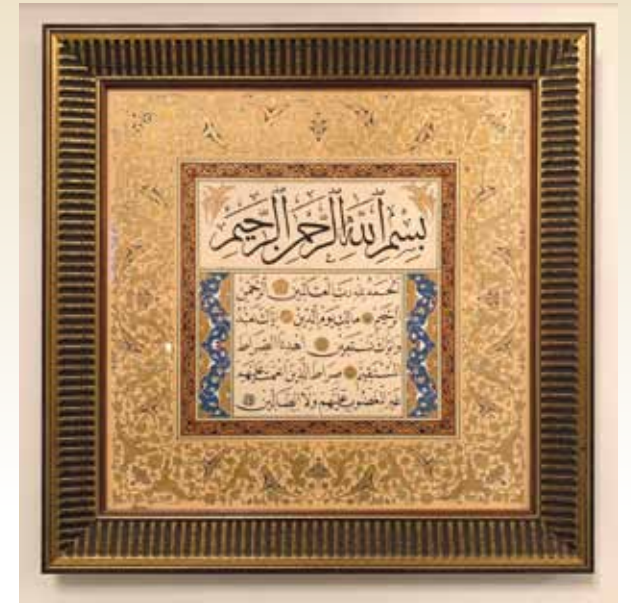 بِسْمِ ٱللَّهِ ٱلرَّحْمَٰنِ ٱلرَّحِيمِ
الحمد لله رب العالمين الرحمن
الرحيم مالك يوم الدين إياك نعبد
وإياك نستعين اهدنا الصراط
المستقيم صراط الذين أنعمت عليهم
غير المغضوب عليهم ولا الضالين